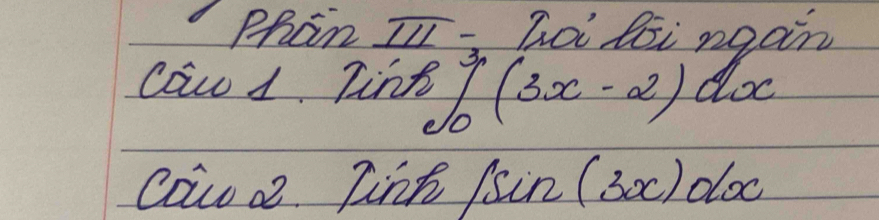 Phần III - Trả lời ngắn
Câu 1. Tính ∫₀³ (3x - 2) dx
Câu 2. Tính ∫sin (3x) dx